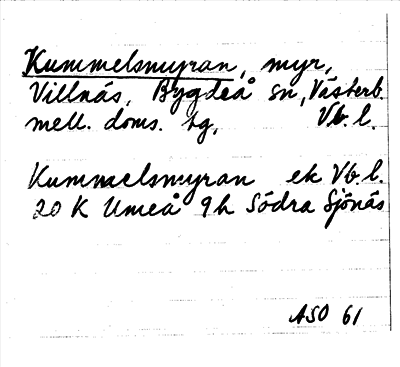 Kummelsmyran, myr,
Villnäs, Bygdeå sn, Västerb.
mell. doms. tg, Vb. l.
Kummelsmyran ek Vb. l.
20 K Umeå 9h Södra Sjönäs
ASO 61